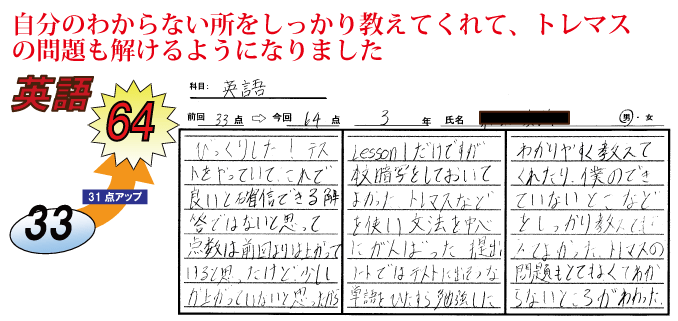 自分のわからない所をしっかり教えてくれて、トレマス
の問題も解けるようになりました
英語
64
31点アップ
33
科目: 英語
前回 33点 ⇨ 今回 64点 3年 氏名 男・女
びっくりした！テス
トをやっていて、これで
良いと確信できる解
答ではないと思って
点数は前回よりは上がって
いると思ったけど、少し
か上がっていないと思ったから
Lesson 1だけですが
暗写をしておいて
よかった。トレマスなど
を使い文法を中心
にがんばった 提出
ノートではテストに出そうな
単語をひたすら勉強した
わかりやすく教えて
くれたり、僕のでき
ていないとこなど
をしっかり教えて
よかった。トレマスの
問題もとてもよくてわか
らないところがわかった。